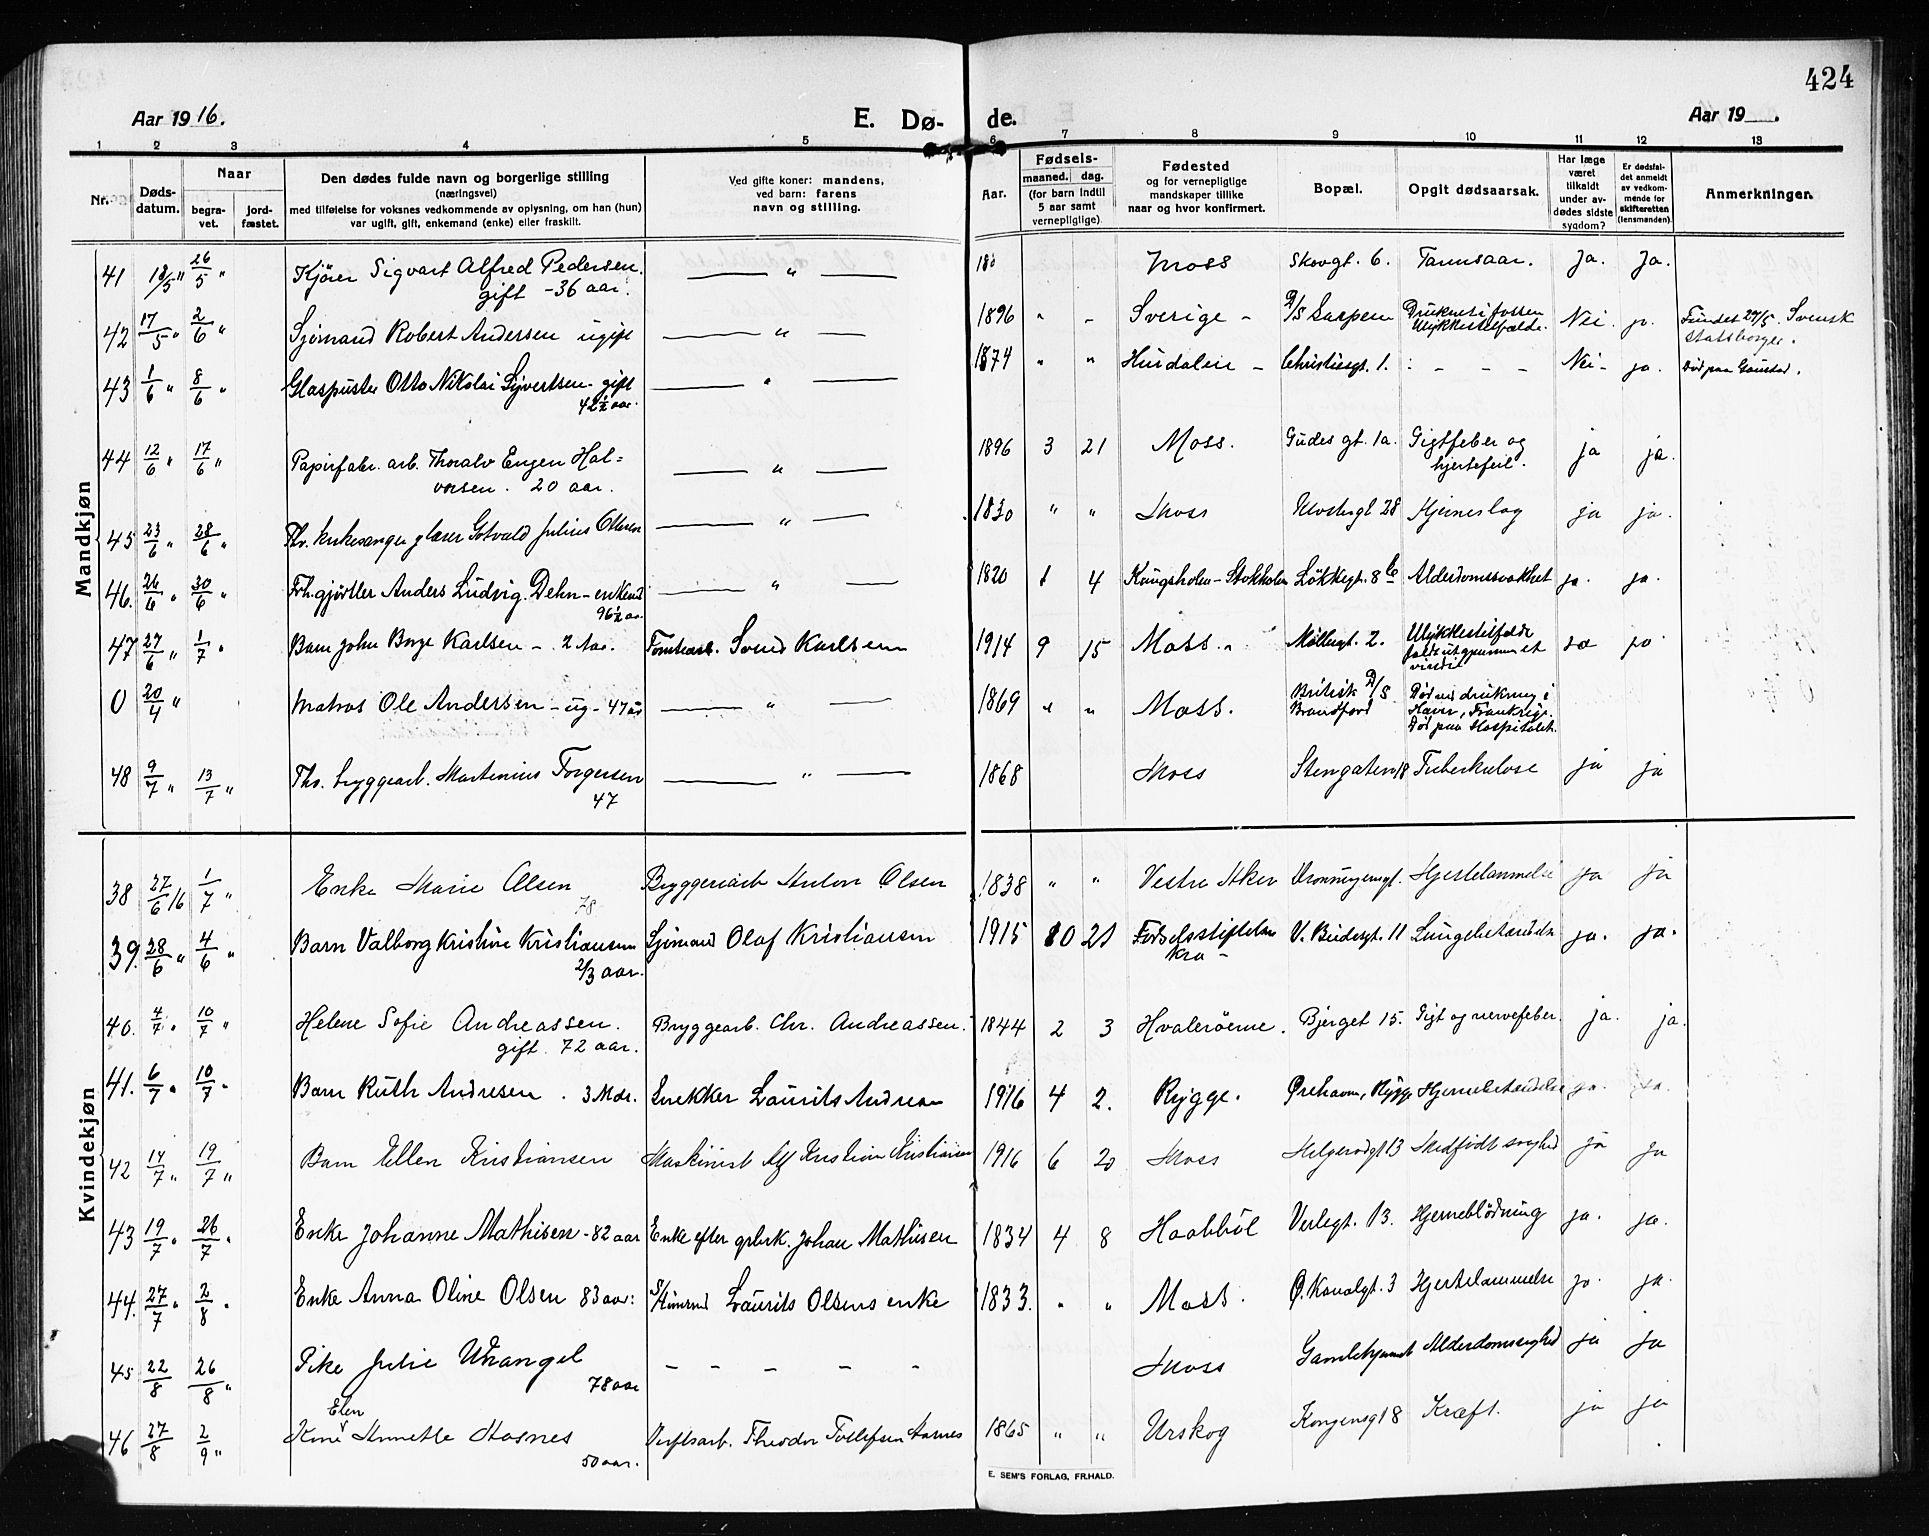 424
Aar 1916.
E. Dø-
de.
Aar 19
1 2 3 4 5 6 7 8 9 10 11 12 13
Nr.
Døds-
datum.
Naar
begra-
vet.
jord-
fæstet.
Den dødes fulde navn og borgerlige stilling
(næringsvei)
med tilføielse for voksnes vedkommende av oplysning, om han (hun)
var ugift, gift, enkemand (enke) eller fraskilt.
Ved gifte koner: mandens,
ved barn: farens
navn og stilling.
Aar.
Fødsels-
maaned. dag.
(for barn indtil
5 aar samt
vernepligtige).
Fødested
og for vernepligtige
mandskaper tillike
naar og hvor konfirmert.
Bopæl.
Opgit dødsaarsak.
Har læge
været
tilkaldt
under av-
dødes sidste
sygdom?
Er dødsfal-
det anmeldt
av vedkom-
mende for
skifteretten
(lensmanden).
Anmerkninger.
Mandkjøn
41 18/5 " 26/5 " Kjører Sigvart Alfred Pedersen. — " — 18 Moss Skovgt. 6. Ja. Ja.
gift - 36 aar.
42 17/5 " 2/6 " Sjømand Robert Andersen ugift — " — 1896 " " Sverige - D/S Sarpen Druknet i fossen Nei. ja. Fundet 27/5. Svensk
Ulykkestilfælde. statsborger.
43 1/6 " 8/6 " Glaspuster Otto Nikolai Syvertsen - gift — " — 1874 " " Christiesgt. 1. : - - - Nei - ja. Død paa Gaustad.
42 1/2 aar.
44 12/6 " 17/6 " Papirfabr. arb. Thoralv Eugen Hal= — " — 1896 3 21 Moss. Gudes gt. 1a. Gigtfeber og ja ja.
vorsen. 20 aar. hjertefeil.
45 23/6 " 28/6 " Fhv. kirkesanger glaser Gotvald Julius Olsen — " — 1830 " " Moss 28 Hjerneslag ja ja.
46. 26/6 " 30/6 " Fhv. gjørtler Anders Ludvig Dehn - enkem — " — 1820 1 4 Kungsholm - Stokholm Løkkegt. 8 b Alderdomssvakhet ja. ja.
96 1/2 aar
47 27/6 " 1/7 " Barn John Borge Karlsen - 2 Aar. Svend Karlsen 1914 9 15 Moss. " Møllergt. 2. Ulykkestilfælde
faldt ut gjennem et
vindu ja ja
0 20/4 " Matros Ole Andersen - ug - 47 aar — " — 1869 " " Moss. Britisk D/S Død ved drukning i
Brandford Havre, Frankrige.
Død paa Hospitalet.
48 9/7 " 13/7 " Fhv. bryggearb. Martinius Torgersen — " — 1868 Moss Stengaten 18 Tuberkulose ja ja
47
Kvindekjøn
38 27/6 16 1/7 " Enke Marie Olsen Bryggeriarb Anton Olsen 1838 " " Vestre Aker Kronningensgt. Hjertelammelse ja ja
78
39. 28/6 " 4/6 " Barn Valborg Kristine Kristiansen Sjømand Olaf Kristiansen 1915 10 21 Fødselsstiftelsen V. Budesgt. 11 Lungebetændelse ja. ja.
2/3 aar. Kra -
40. 4/7 " 10/7 " Helene Sofie Andreassen. Bryggearb. Chr. Andreassen. 1844 2 3 Hvalerøerne. Bjerget 15. Gigt og nervefeber. ja. ja.
gift. 72 aar.
41. 6/7 " 10/7 " Barn Ruth Andresen. 3 Mdr. Snekker Laurits Andresen 1916 4 2. Rygge. Ørehavn, Rygge Hjernebetændelse ja. ja.
42 14/7 " 19/7 " Barn Ellen Kristiansen Maskinist Alf Kristian Kristiansen 1916 6 20 Moss Helgerødgt 13 Medfødt svaghed ja ja
43 19/7 " 26/7 " Enke Johanne Mathisen - 82 aar Enke efter Johan Mathisen 1834 4 8 Haabbøl Verlegt. 13. Hjerneblødning ja. ja.
44. 27/7 " 2/8 " Enke Anna Oline Olsen 83 aar: Sjømand Laurits Olsens enke 1833. " " Moss. Ø. Kanalgt. 3 Hjertelammelse ja. ja.
45 22/8 26/8 " Pike Julie Wrangel - - - - - Moss Gamlehjemmet Alderdomssvaghed ja ja
78 aar
46 27/8 2/9 " Kone Elen Annette Aasnes Theodor Tollefsen Aasnes 1865 " " Urskog Kongensgt 8 Kræft. ja ja
50 aar.
E. SEM'S FORLAG, FR.HALD.